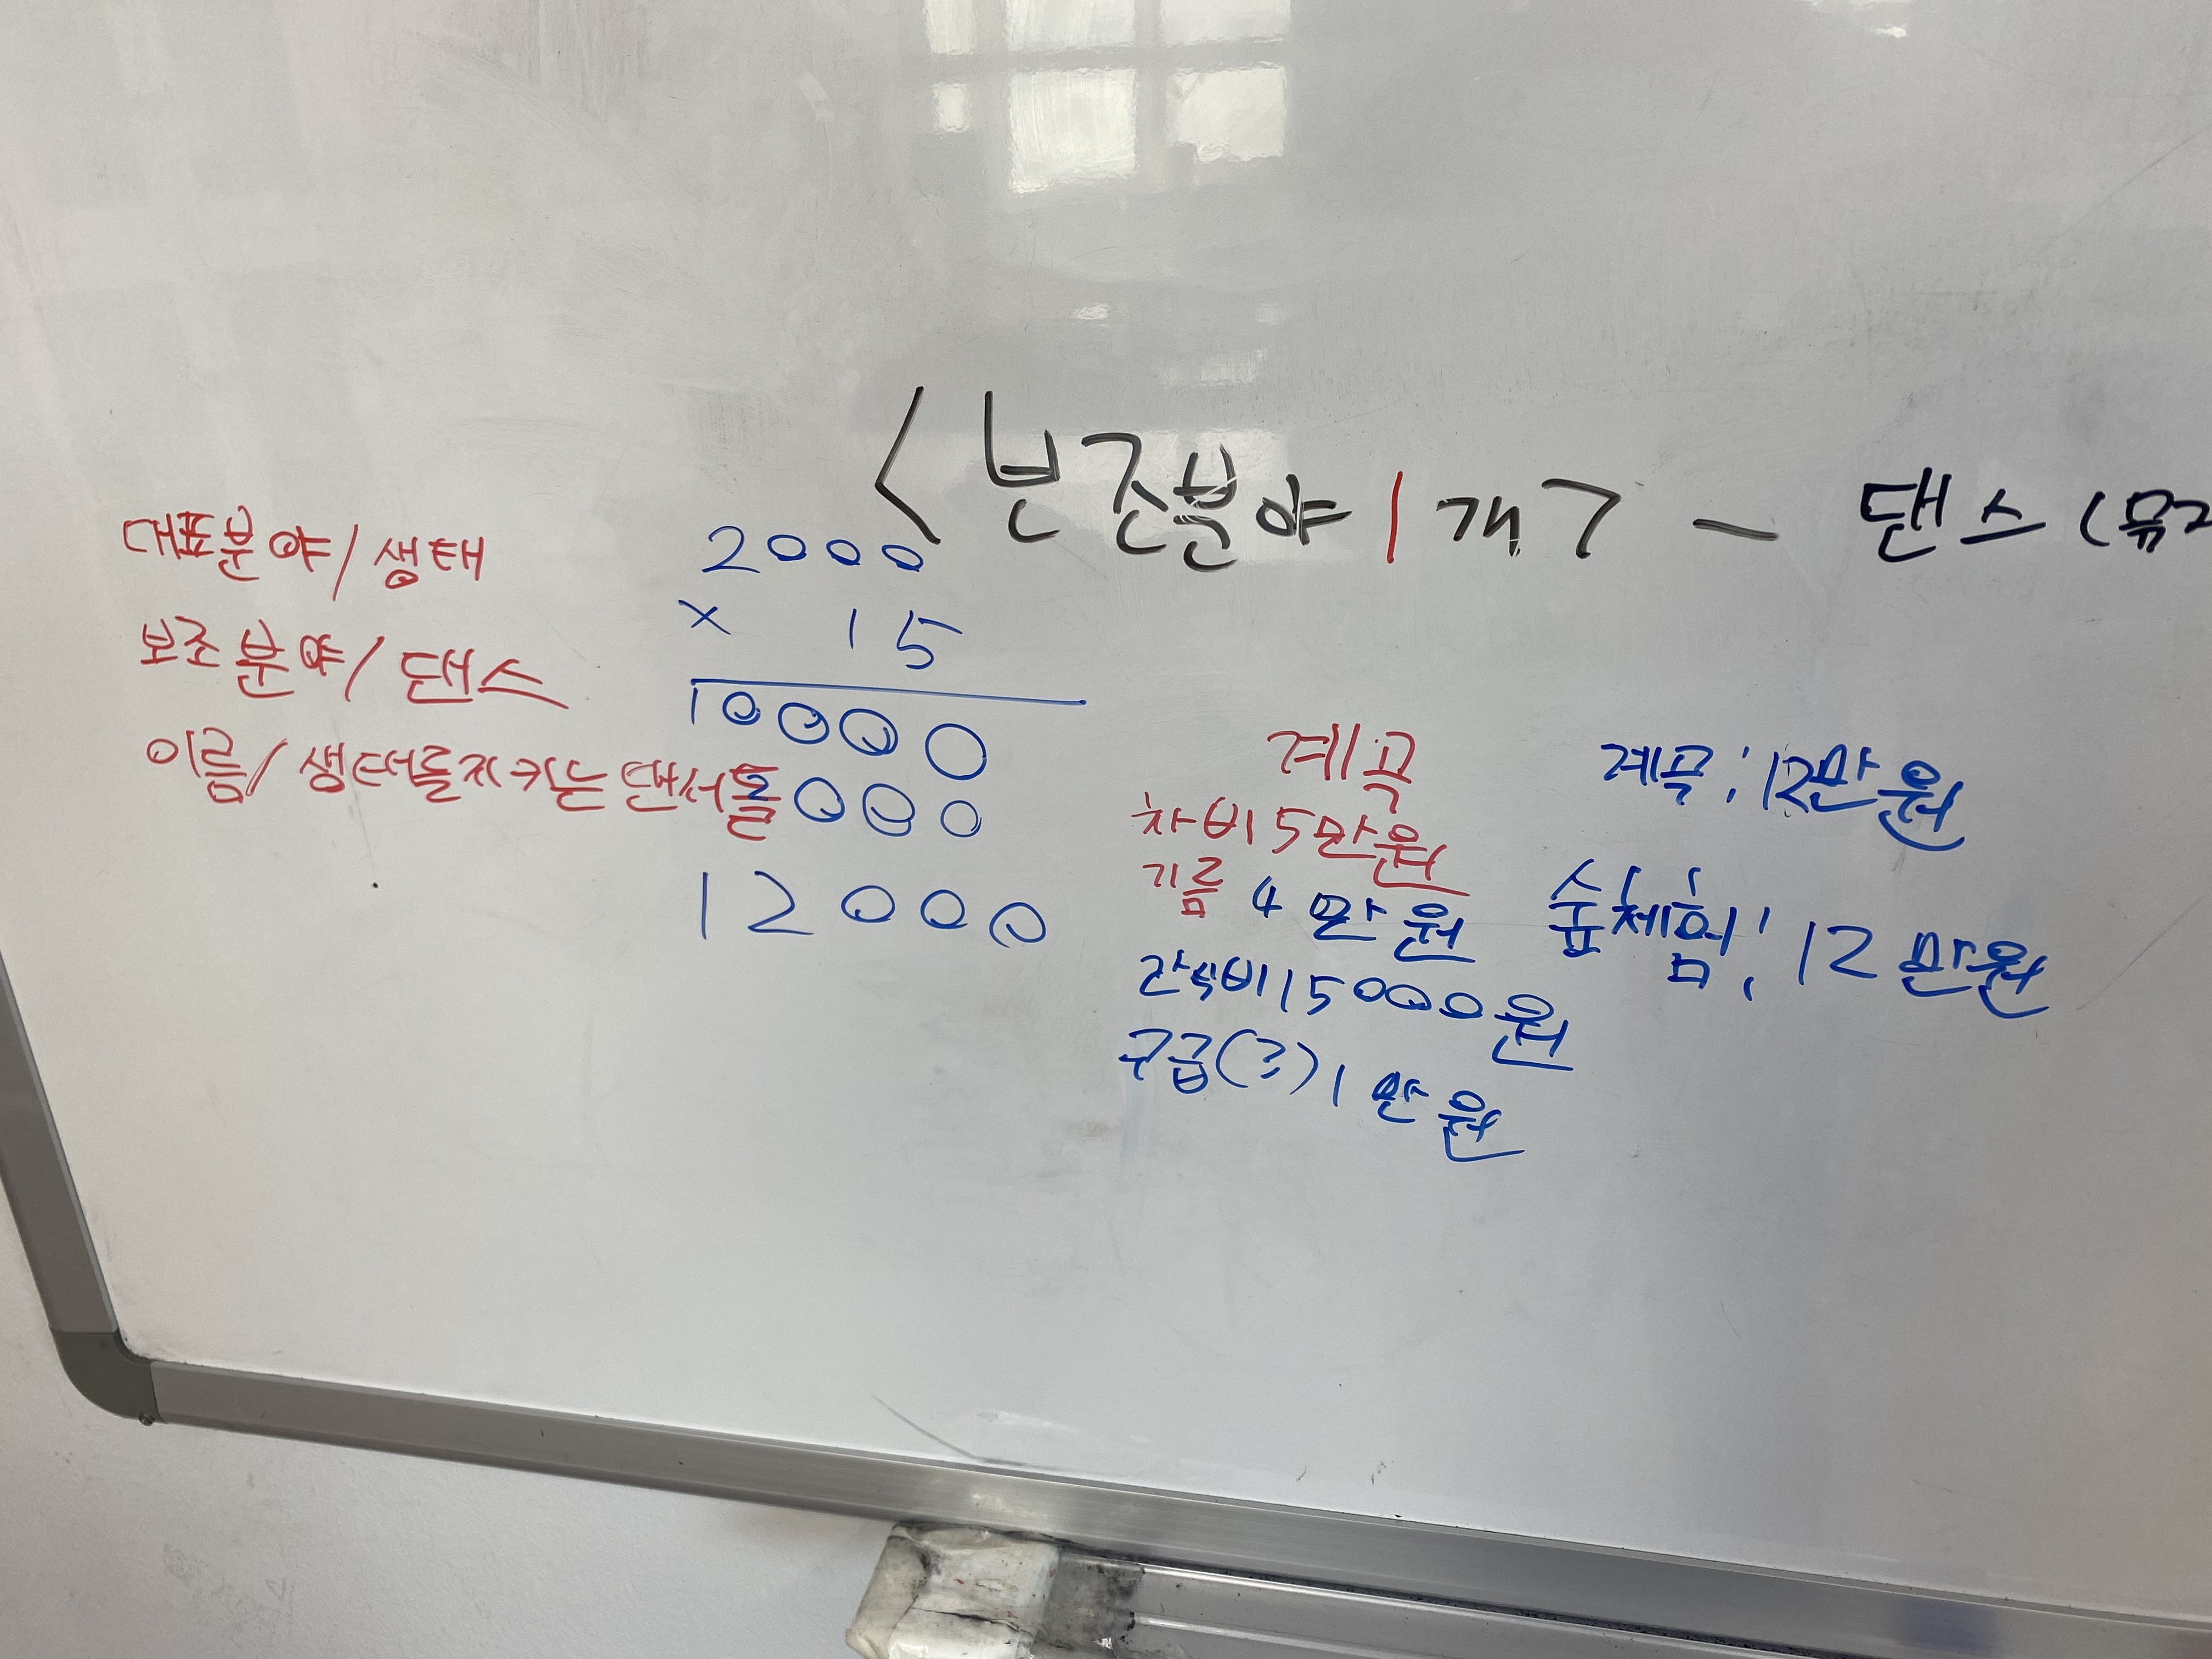 <보조분야 1개> - 댄스 (뮤
대표분야/생태
보조분야/댄스
이름/생태를지키는댄서들
2000
× 15
10000
2000
12000
계곡
차비 5만원
기름 4만원
간식비 15000원
구급(?) 1만원
계곡: 12만원
숲체험: 12만원